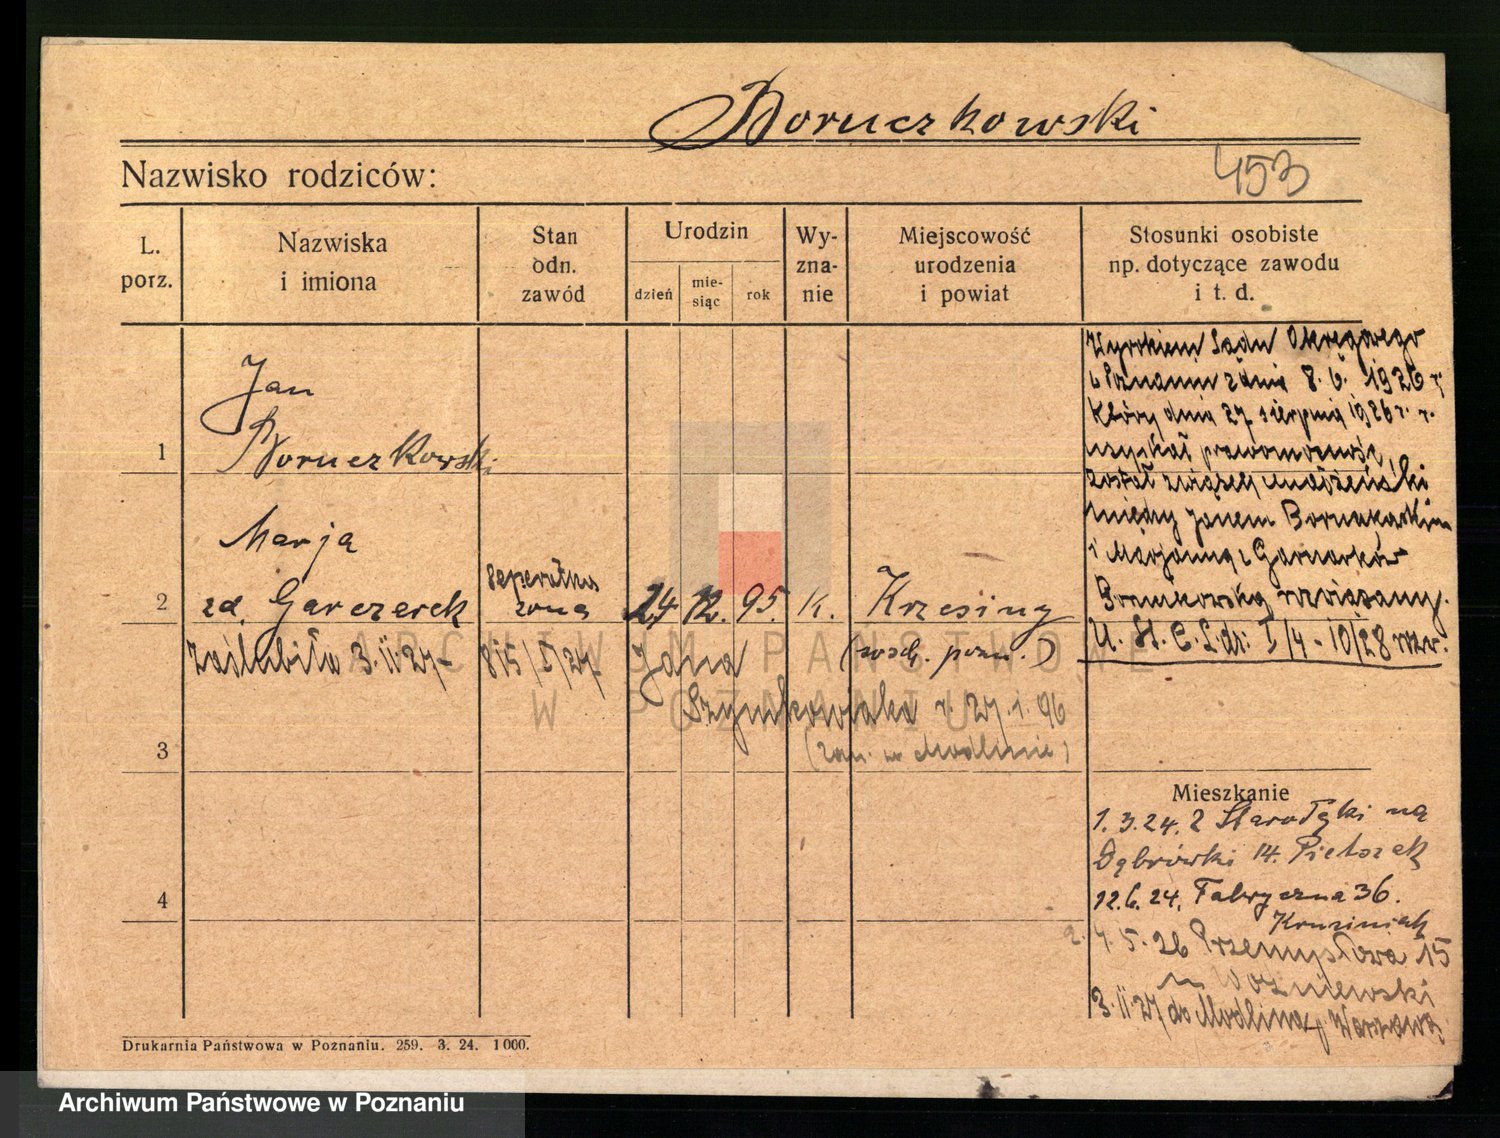 Boruczkowski
Nazwisko rodziców:
453
L. porz.
Nazwiska i imiona
Stan odn. zawód
Urodzin
dzień
mie-siąc
rok
Wy-zna-nie
Miejscowość urodzenia i powiat
Stosunki osobiste np. dotyczące zawodu i t. d.
1
Jan
Boruczkowski
2
Marja
zd. Garczarek
żona
24 12. 95.
k.
Krzesiny
(wsch. pozn.)
zaślubiła 3.II.27
815/I/27
Jana
Szymkowiaka r. 27.1.96
(zam. w Modlinie)
3
4
Wyrokiem Sądu Okręgowego
w Poznaniu z dnia 8. 6. 1926 r.
który dnia 27 sierpnia 1926 r.
uzyskał prawomocność
został związek małżeński
między Janem
i Marjanną z
rozwiązany.
U. St. C. I/4 - 10/28
Mieszkanie
1.3.24. Z Starołęki na
Dąbrówki 14. Pietrzak
12.6.24. Fabryczna 36.
4.5.26 Przemysłowa 15
Woźniewski
3.II.27 do Modlina Warszawa
Drukarnia Państwowa w Poznaniu. 259. 3. 24. 1000.
ARCHIWUM PAŃSTWOWE
W POZNANIU
Archiwum Państwowe w Poznaniu